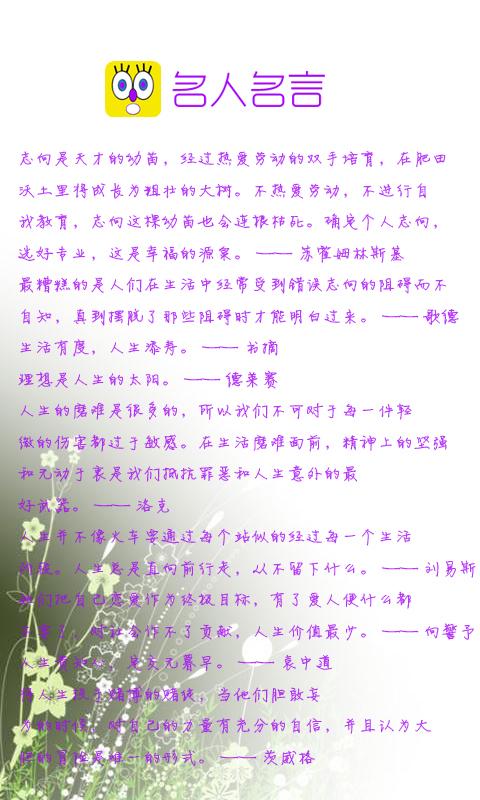 名人名言
志向是天才的幼苗，经过热爱劳动的双手培育，在肥田
沃土里将成长为粗壮的大树。不热爱劳动，不进行自
我教育，志向这棵幼苗也会连根枯死。确定个人志向，
选好专业，这是幸福的源泉。 —— 苏霍姆林斯基
最糟糕的是人们在生活中经常受到错误志向的阻碍而不
自知，真到摆脱了那些阻碍时才能明白过来。 —— 歌德
生活有度，人生添寿。 —— 书摘
理想是人生的太阳。 —— 德莱赛
人生的磨难是很多的，所以我们不可对于每一件轻
微的伤害都过于敏感。在生活磨难面前，精神上的坚强
和无动于衷是我们抵抗罪恶和人生意外的最
好武器。 —— 洛克
人生并不像火车要通过每个站似的经过每一个生活
阶段。人生总是直向前行走，从不留下什么。 —— 刘易斯
我们把自己恋爱作为终极目标，有了爱人便什么都
不要了，对社会作不了贡献，人生价值最少。 —— 向警予
人生贵知心，定交无暮早。 —— 袁中道
人生投于赌博的赌徒，当他们胆敢妄
为的时候，对自己的力量有充分的自信，并且认为大
胆的冒险是唯一的形式。 —— 茨威格